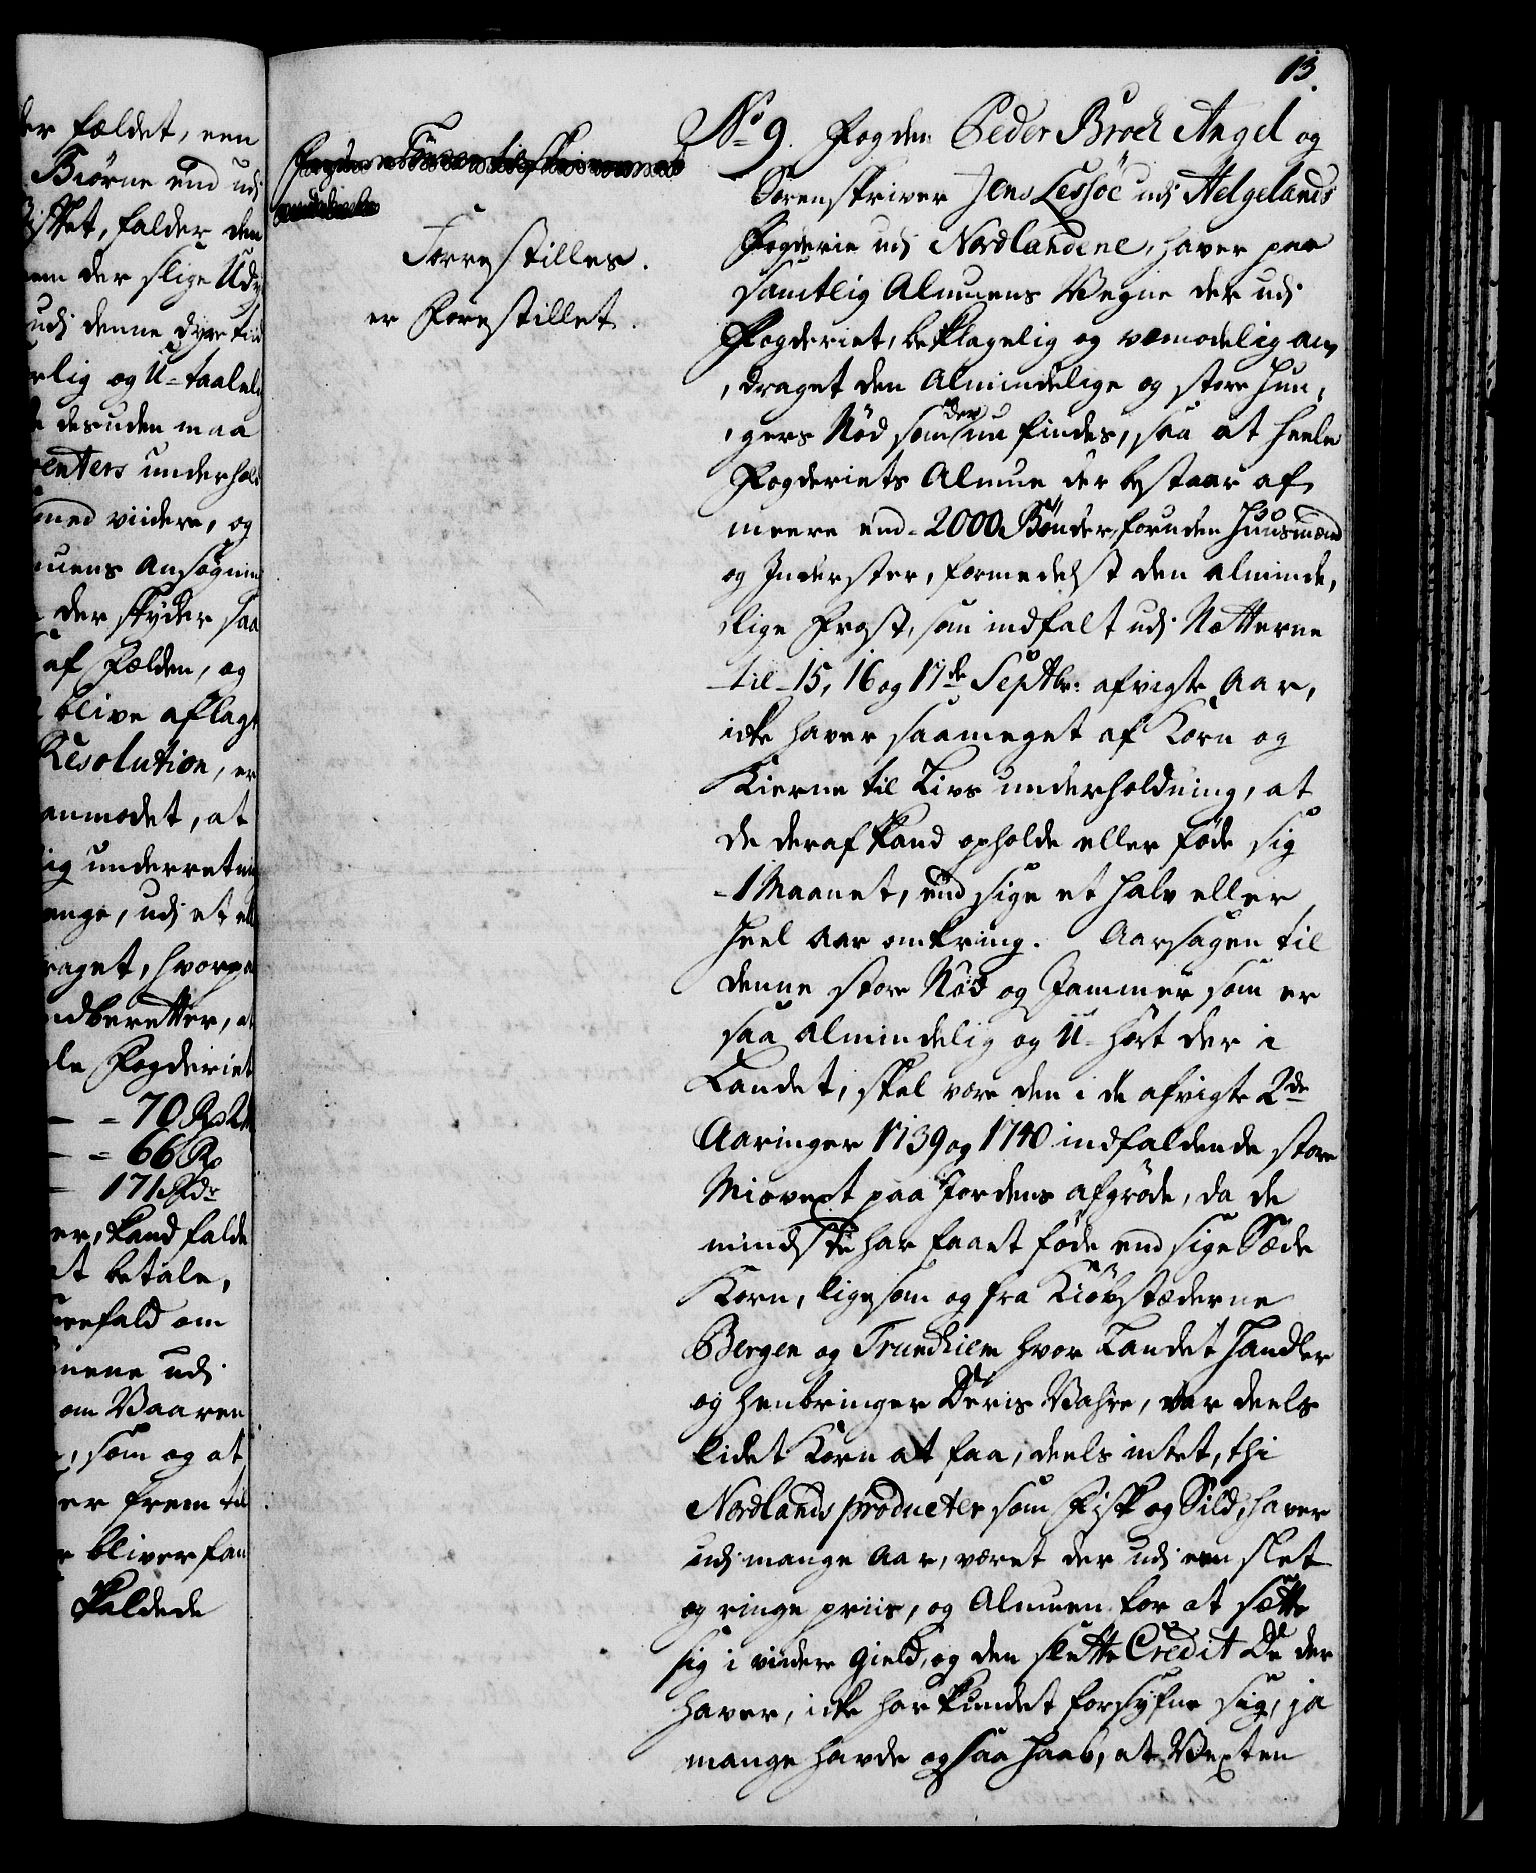 er fældet, een
Biørne end udi
falder den
em der slige Ud
udi denne dyre tiid
rlig og U-taalelig
desuden maa
enters underhold
med viidere, og
uens Ansøgning
der skyder saa
af Fælden, og
blive aflagt
Resolution, er
anmodet, at
ig underretning
enge, udi et
raget, hvorpaa
ndberetter, at
le Fogderiet
- = 70 Rd
- = 66 Rd
- 171 Rdr
er, kand falde
at betale,
enefald om
nene udi
om Vaaren
, som og at
er frem til
bliver fan
kaldede
Forrestilles.
er Forestillet.
13.
No 9. Fogden Peder Broch Angel og
Sorenskriver Jens Lessøe udi Helgelands
Fogderie udi Nordlandene, haver paa
samtlig Almuens Vegne der udi
Fogderiet, beklagelig og vemodelig an,
,draget den Almindelige og store Hun,
,gers Nød som der nu findes, saa at heele
Fogderiets Almue der bestaar af
meere end 2000 Bønder, foruden Huusmænd
og Inderster, formedelst den alminde,
,lige Frost, som indfalt udi Nætterne
til 15, 16 og 17de Septbr: afvigte Aar,
icke haver saameget af Korn og
Kierne til Livs underholdning, at
de deraf kand opholde eller føde sig
1 Maanet, end sige et halv eller
heel Aar omkring. Aarsagen til
denne store Nød og Jammer som er
saa almindelig og U-hørt der i
Landet, skal være den i de afvigte 2de
Aaringer 1739 og 1740 indfaldende store
Misvext paa Jordens afgrøde, da de
mindste har faaet føde end sige Sæde
Korn, ligesom og fra Kiøbstæderne
Bergen og Trundhiem hvor Landet Handler
og henbringer Deris Vahre, var deels
lidet Korn at faa, deels intet, thi
Nordlands producter som Fisk og Sild, haver
udi mange Aar, været der udi een slet
og ringe priis, og Almuen for at sætte
sig i viidere Gield, og den slette Credit De der
haver, icke har kundet forsyfne sig, ja
mange havde ogsaa Haab, at Vexten